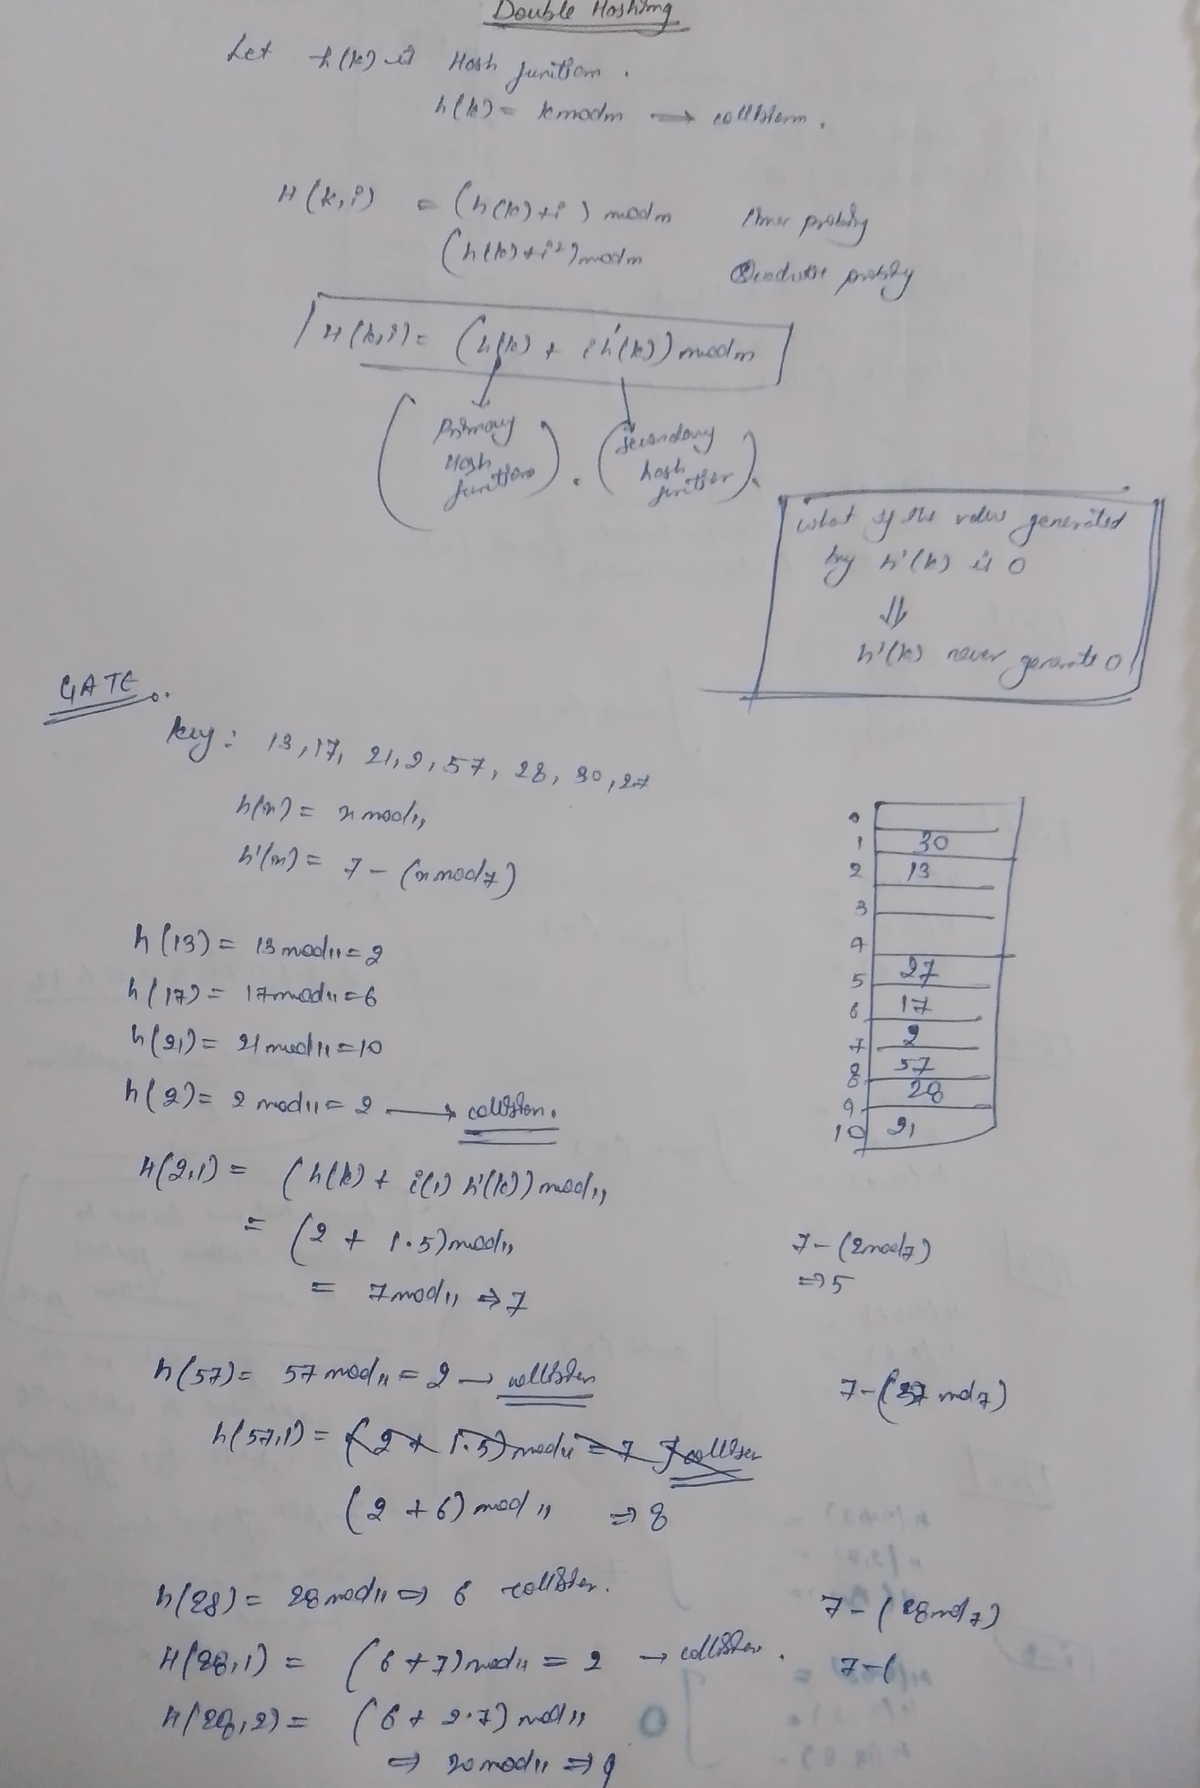 Double Hashing
Let h(k) is Hash function.
h(k) = k mod m → collision.
H(k,i) = (h(k)+i) mod m linear probing
(h(k)+i²) mod m Quadratic probing
H(k,i) = (h(k) + i h'(k)) mod m
(Primary Hash function). (secondary hash function).
what if the value generated
by h'(k) is 0
⇓
h'(k) never generate 0
GATE.
key: 13, 17, 21, 2, 57, 28, 30, 27
h(x) = x mod 11
h'(x) = 7 - (x mod 7)
0
1 30
2 13
3
4
5 27
6 17
7 2
8 57
9 28
10 21
h(13) = 13 mod 11 = 2
h(17) = 17 mod 11 = 6
h(21) = 21 mod 11 = 10
h(2) = 2 mod 11 = 2 → collision.
H(2,1) = (h(k) + i(1) h'(k)) mod 11
= (2 + 1·5) mod 11
= 7 mod 11 ⇒ 7
7 - (2 mod 7)
⇒ 5
h(57) = 57 mod 11 = 2 → collision
7 - (57 md 7)
h(57,1) = (2 + 1·5) mod 11 = 7 collision
(2 + 6) mod 11 ⇒ 8
h(28) = 28 mod 11 ⇒ 6 collision.
7 - (28 md 7)
H(28,1) = (6 + 7) mod 11 = 2 → collision.
7 - (
H(28,2) = (6 + 2·7) mod 11
⇒ 20 mod 11 ⇒ 9